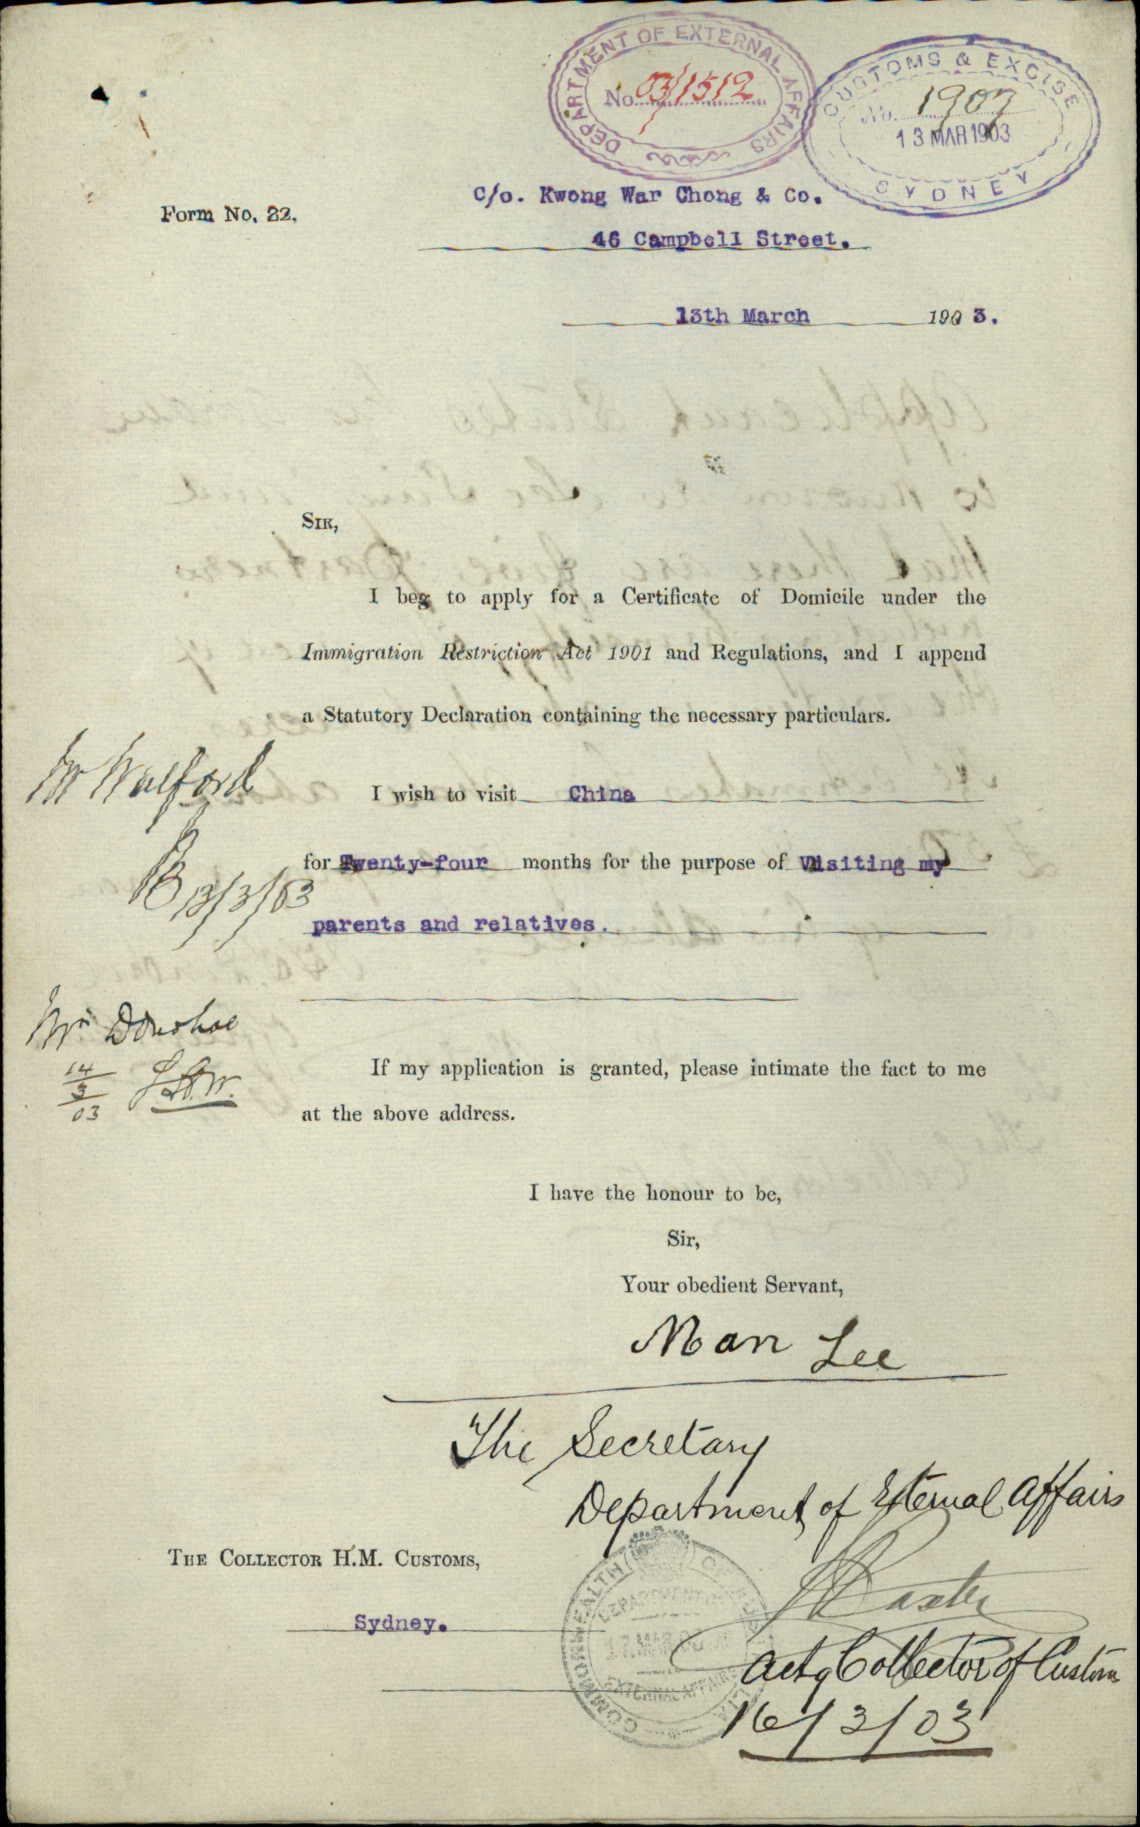 DEPARTMENT OF EXTERNAL AFFAIRS
No. 03/1512
CUSTOMS & EXCISE
No. 1907
13 MAR 1903
SYDNEY
Form No. 22.
C/o. Kwong War Chong & Co.
46 Campbell Street.
13th March 1903.
SIR,
I beg to apply for a Certificate of Domicile under the
Immigration Restriction Act 1901 and Regulations, and I append
a Statutory Declaration containing the necessary particulars.
Mr Walford
I wish to visit China
for Twenty-four months for the purpose of Visiting my
13/3/03
parents and relatives.
Mr Donohoe
14/3/03
If my application is granted, please intimate the fact to me
at the above address.
I have the honour to be,
Sir,
Your obedient Servant,
Man Lee
The Secretary
Department of External Affairs
THE COLLECTOR H.M. CUSTOMS,
Sydney.
COMMONWEALTH OF AUSTRALIA
DEPARTMENT OF
17 MAR 03
EXTERNAL AFFAIRS
Baxter
Actg Collector of Customs
16/3/03